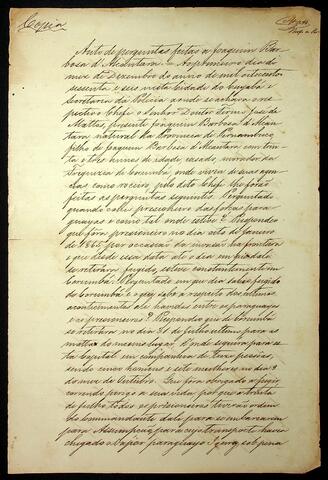 Copia
Auto de perguntas feitas a Joaquim Bar
bosa d'Alcantara = Ao primeiro dia do
mez de Dezembro do anno de mil oitocentos
sessenta e seis nesta Cidade do Cuyabá e
Secretaria da Policia aonde se achava o res
pectivo Chefe o Senhor Doutor José de
Mattos, presente Joaquim Barbosa d'Alcan
tara natural da Provincia de Pernambuco
filho de Joaquim Barbosa d'Alcantara com trin
ta e tres annos de idade casado morador da
Freguezia de Corumbá onde vivia de suas agen
cias como recovo pelo dito Chefe lhe forão
feitas as perguntas seguintes Perguntado
quando cahio prisioneiro das forças para
guayas e como tal onde esteve? Respondeo
que fora prisioneiro no dia oito de Janeiro
de 1865 por occasião da invasão na fronteira
e que desde essa data até o dia em que
se retirou fugido esteve constantemente em
Corumbá. Perguntado em que dia sahio fugido
de Corumbá e o que sabia a respeito dos ultimos
acontecimentos ali havidos entre os paraguayos
e os prisioneiros? Respondeo que de Corumbá
se retirou no dia 31 de Julho ultimo para as
mattas do mesmo lugar, d'onde seguira para es
ta Capital em companhia de doze pessoas,
sendo cinco homens e sete mulheres no dia 3
do mez de Outubro. Que fora obrigado a fugir
correndo perigo a sua vida por que a trinta
de Julho todos os prisioneiros tiverão ordem
do Commandante dali para se embarcarem
para Assumpção, para cujo transporte havia
chegado o Vapor paraguayo Igurey sob pena